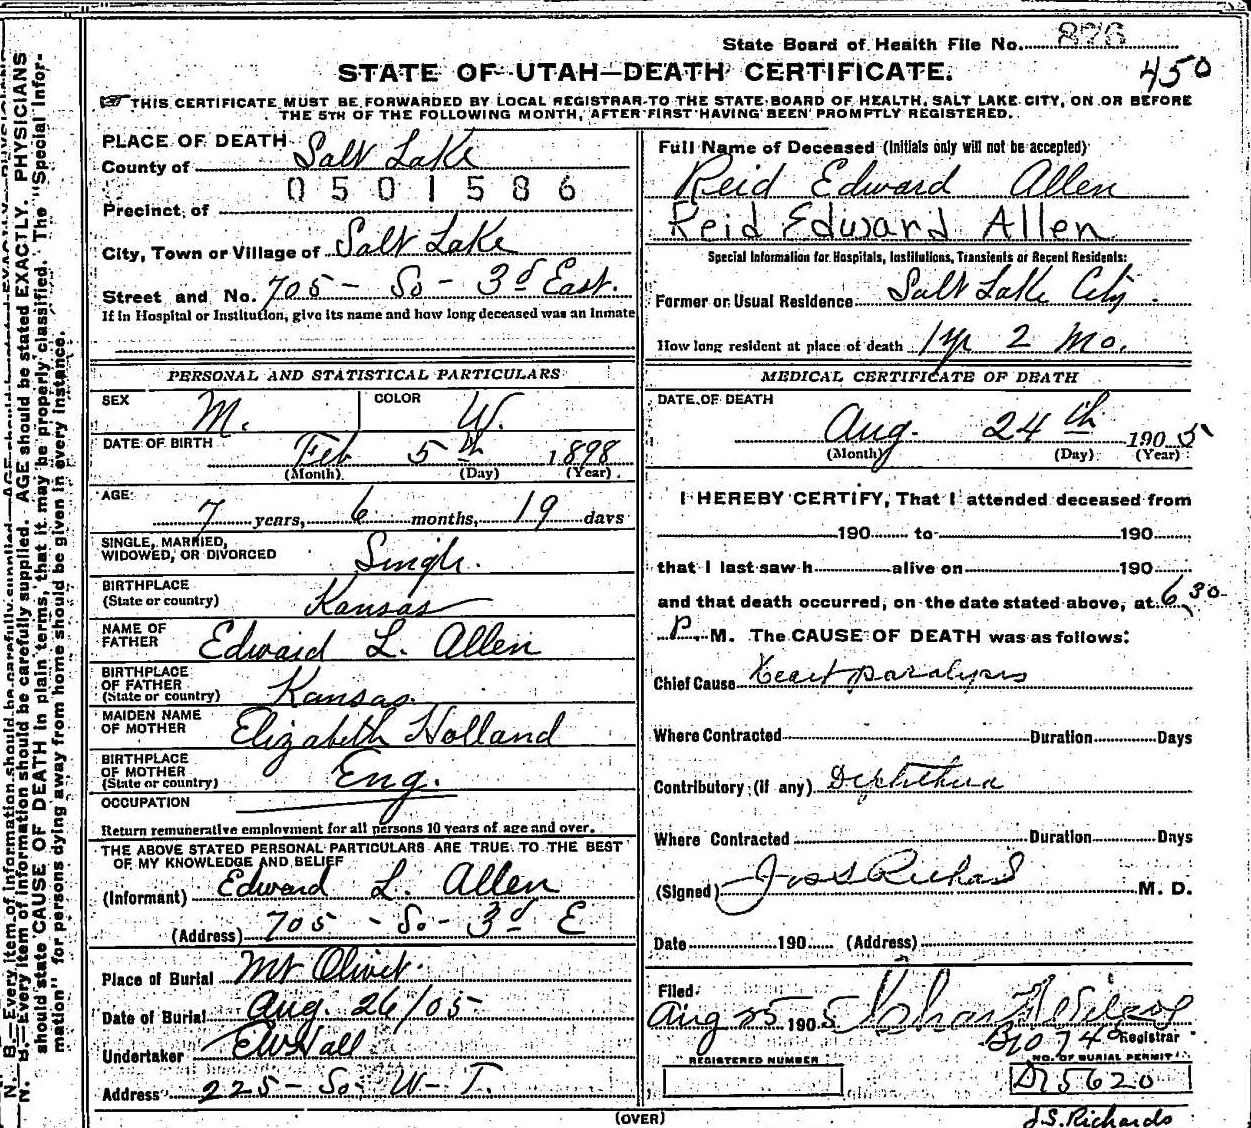 State Board of Health File No. 876
450
STATE OF UTAH—DEATH CERTIFICATE.
THIS CERTIFICATE MUST BE FORWARDED BY LOCAL REGISTRAR TO THE STATE BOARD OF HEALTH, SALT LAKE CITY, ON OR BEFORE
THE 5TH OF THE FOLLOWING MONTH, AFTER FIRST HAVING BEEN PROMPTLY REGISTERED.
PLACE OF DEATH
County of Salt Lake
0501586
Precinct of
City, Town or Village of Salt Lake
Street and No. 705 - So - 3d East.
If in Hospital or Institution, give its name and how long deceased was an Inmate
PERSONAL AND STATISTICAL PARTICULARS
SEX M. COLOR W.
DATE OF BIRTH Feb 5th 1898
(Month) (Day) (Year)
AGE 7 years, 6 months, 19 days
SINGLE, MARRIED,
WIDOWED, OR DIVORCED Single.
BIRTHPLACE
(State or country) Kansas
NAME OF
FATHER Edward L. Allen
BIRTHPLACE
OF FATHER
(State or country) Kansas.
MAIDEN NAME
OF MOTHER Elizabeth Holland
BIRTHPLACE
OF MOTHER
(State or country) Eng.
OCCUPATION
Return remunerative employment for all persons 10 years of age and over.
THE ABOVE STATED PERSONAL PARTICULARS ARE TRUE TO THE BEST
OF MY KNOWLEDGE AND BELIEF
(Informant) Edward L. Allen
(Address) 705 - So - 3d E
Place of Burial Mt Olivet.
Date of Burial Aug. 26/05
Undertaker E W Hall
Address 225 - So. W - T.
Full Name of Deceased (Initials only will not be accepted)
Reid Edward Allen
Reid Edward Allen
Special Information for Hospitals, Institutions, Transients or Recent Residents:
Former or Usual Residence Salt Lake City.
How long resident at place of death 1 yr 2 Mo.
MEDICAL CERTIFICATE OF DEATH
DATE OF DEATH
Aug. 24th 1905
(Month) (Day) (Year)
I HEREBY CERTIFY, That I attended deceased from
190 to 190
that I last saw h alive on 190
and that death occurred, on the date stated above, at 6 30
P. M. The CAUSE OF DEATH was as follows:
Chief Cause Heart paralysis
Where Contracted Duration Days
Contributory (if any) Diphtheria
Where Contracted Duration Days
(Signed) Jos S Richards M. D.
Date 190 (Address)
Filed
Aug 25 1905 Chas Wilcox
Registrar
REGISTERED NUMBER
NO. OF BURIAL PERMIT
D5620
J.S. Richards
(OVER)
N. B.—Every item of information should be carefully supplied. AGE should be stated EXACTLY. PHYSICIANS
should state CAUSE OF DEATH in plain terms, that it may be properly classified. The "Special Infor-
mation" for persons dying away from home should be given in every instance.